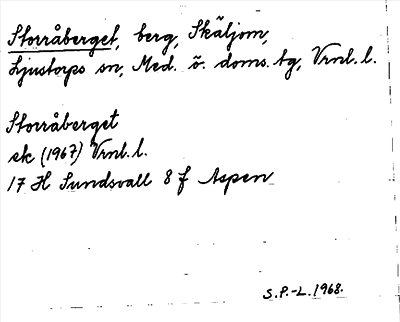 Storråberget, berg, Skäljom,
Ljustorps sn, Med. ö. doms. tg, Vrnl. l.
Storråberget
ek (1967) Vrnl. l.
17 H Sundsvall 8 f Aspen
S.P.-L. 1968.